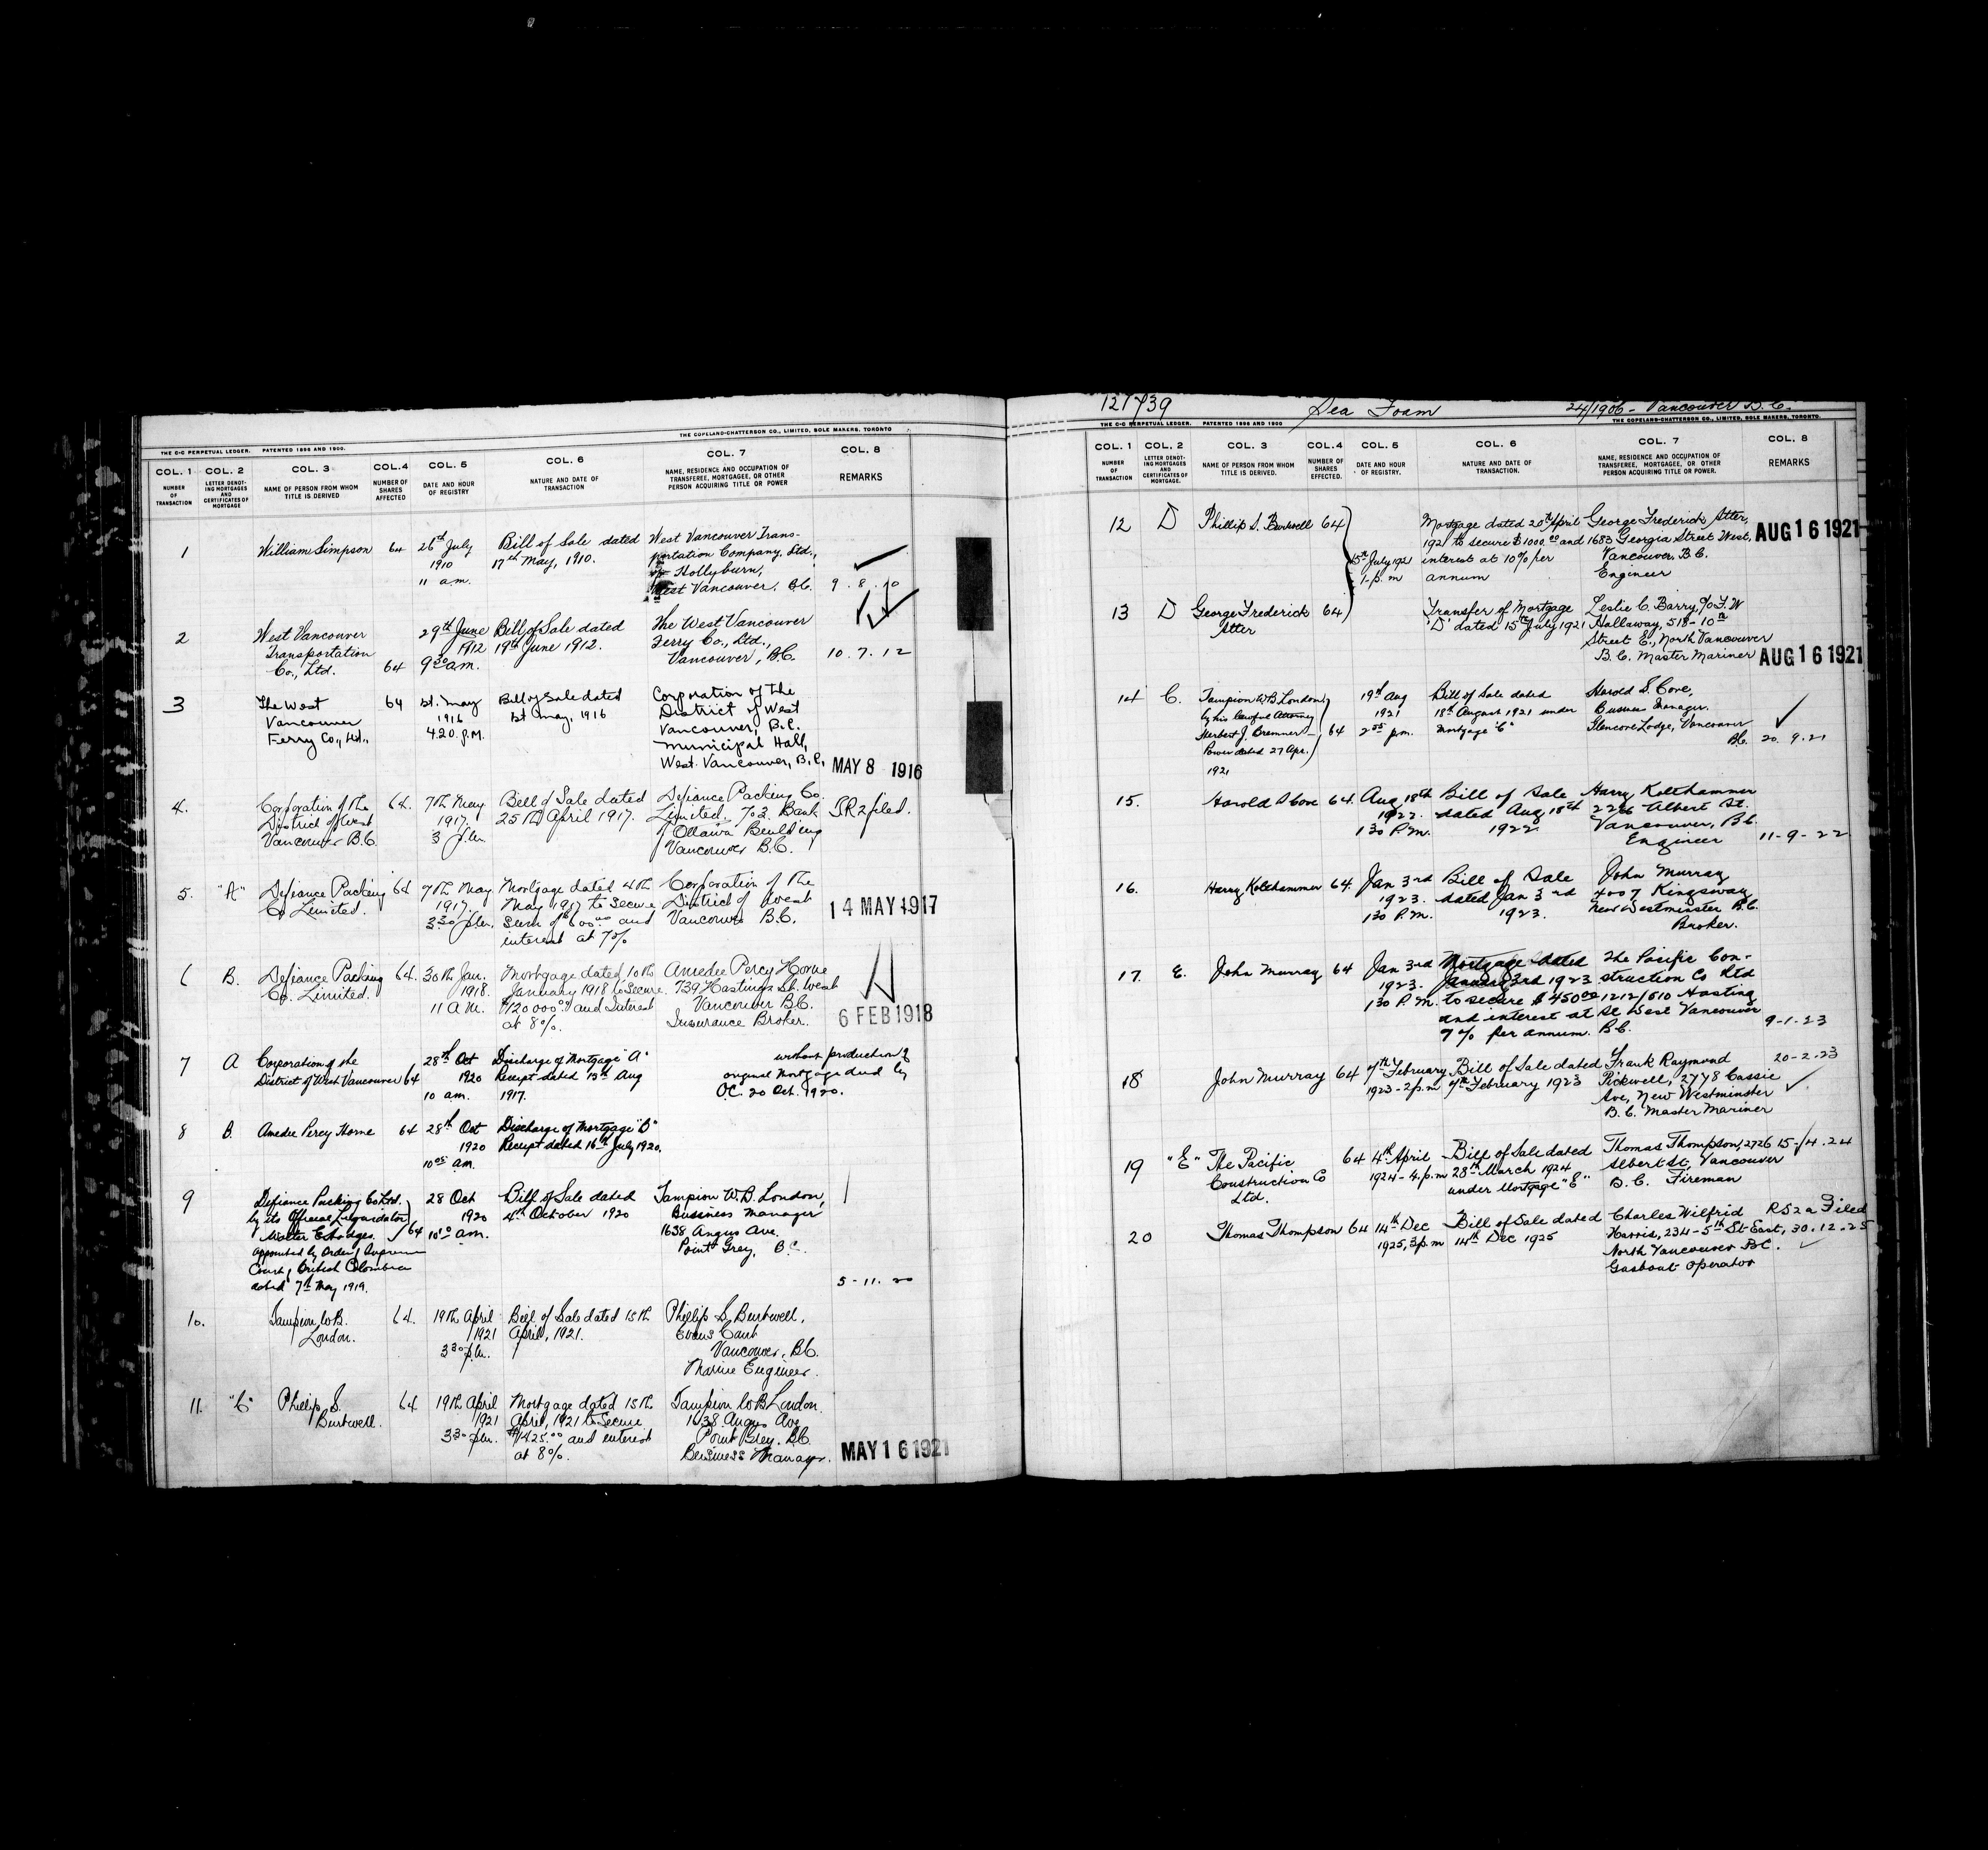 THE C-C PERPETUAL LEDGER. PATENTED 1896 AND 1900. THE COPELAND-CHATTERSON CO., LIMITED, SOLE MAKERS, TORONTO
COL. 1 COL. 2 COL. 3 COL. 4 COL. 5 COL. 6 COL. 7 COL. 8
NUMBER OF TRANSACTION
LETTER DENOT-
ING MORTGAGES
AND
CERTIFICATES OF
MORTGAGE
NAME OF PERSON FROM WHOM
TITLE IS DERIVED
NUMBER OF
SHARES
AFFECTED
DATE AND HOUR
OF REGISTRY
NATURE AND DATE OF
TRANSACTION
NAME, RESIDENCE AND OCCUPATION OF
TRANSFEREE, MORTGAGEE, OR OTHER
PERSON ACQUIRING TITLE OR POWER
REMARKS
1 William Simpson 64 26th July Bill of Sale dated West Vancouver Trans-
1910 17th May, 1910. portation Company, Ltd.,
11 a.m. of Hollyburn,
West Vancouver. B.C. 9.8.10
2 West Vancouver 29th June Bill of Sale dated The West Vancouver
Transportation 1912 19th June 1912. Ferry Co., Ltd.,
Co., Ltd. 64 9 30 a.m. Vancouver, B.C. 10.7.12
3 The West 64 1st. May Bill of Sale dated Corporation of the
Vancouver 1916 1st May, 1916 District of West
Ferry Co., Ltd., 4.20. P.M. Vancouver, B.C.
Municipal Hall,
West Vancouver, B.C, MAY 8 1916
4. Corporation of the 64. 7th May Bill of Sale dated Defiance Packing Co.
District of West 1917. 25th April 1917. Limited. 702 Bank S.R2 filed.
Vancouver B.C. 3 p.m. of Ottawa Building
Vancouver B.C.
5. "A" Defiance Packing 64 7th May Mortgage dated 4th Corporation of the
Co Limited. 1917. May 1917 to secure District of West
3.30 p.m. Sum of $600.00 and Vancouver B.C. 14 MAY 1917
interest at 7%
6 B. Defiance Packing 64. 30th Jan. Mortgage dated 10th Amedee Percy Horne
Co. Limited. 1918. January 1918 to Secure 739 Hastings St. West
11 A.M. $120000.00 and Interest Vancouver B.C.
at 8%. Insurance Broker. 6 FEB 1918
7 A Corporation of the 28th Oct Discharge of Mortgage "A" without production of
District of West Vancouver 64 1920 Receipt dated 13th Aug original Mortgage deed by
10 am. 1917. O.C. 20 Oct. 1920.
8 B. Amedee Percy Horne 64 28th Oct Discharge of Mortgage "B"
1920 Receipt dated 16th July 1920.
10 05 am.
9 Defiance Packing Co Ltd. 28 Oct Bill of Sale dated Tampion W.B. London,
by its Official Liquidator 1920 4th October 1920 Business Manager
Walter E Hodges. 64 10 10 am. 1638 Angus Ave.
appointed by Order of Supreme Point Grey, B C.
Court, British Columbia
dated 7th May 1919. 5-11.20
10. Tampion W.B. 64. 19th April Bill of Sale dated 15th Phillip S. Burtwell,
London. 1921 April, 1921. Evans Court
3 30 p.m. Vancouver, B.C.
Marine Engineer.
11. "C" Phillip S. 64 19th April Mortgage dated 15th Tampion W.B London.
Burtwell. 1921 April, 1921 to Secure 1638 Angus Ave
3 30 p.m. $1425.00 and interest Point Grey. B.C.
at 8%. Business Manager. MAY 16 1921
121739 Sea Foam 24/1906 - Vancouver B.C.
THE C-C PERPETUAL LEDGER. PATENTED 1896 AND 1900 THE COPELAND-CHATTERSON CO., LIMITED, SOLE MAKERS, TORONTO.
COL. 1 COL. 2 COL. 3 COL. 4 COL. 5 COL. 6 COL. 7 COL. 8
NUMBER
OF
TRANSACTION
LETTER DENOT-
ING MORTGAGES
AND
CERTIFICATES OF
MORTGAGE.
NAME OF PERSON FROM WHOM
TITLE IS DERIVED
NUMBER OF
SHARES
EFFECTED.
DATE AND HOUR
OF REGISTRY.
NATURE AND DATE OF
TRANSACTION.
NAME, RESIDENCE AND OCCUPATION OF
TRANSFEREE, MORTGAGEE, OR OTHER
PERSON ACQUIRING TITLE OR POWER.
REMARKS
12 D Phillip S. Burtwell 64 Mortgage dated 20th April George Frederick Atter,
1921 to secure $1000.00 and 1683 Georgia Street West, AUG 16 1921
15th July 1921 interest at 10% per Vancouver. B.C.
1-p.m annum Engineer
13 D George Frederick 64 Transfer of Mortgage Leslie C. Barry, c/o F.W
Atter "D" dated 15th July 1921 Hallaway, 518-10th
Street E., North Vancouver
B.C. Master Mariner AUG 16 1921
14 C. Tampion W.B London 19th Aug Bill of Sale dated Harold S. Cove,
by his lawful Attorney 1921 18th August 1921 under Business Manager.
Herbert J. Bremner 64 2 05 p.m. Mortgage "C" Glencove Lodge, Vancouver
Power dated 27 Apr. B.C. 20.9.21
1921
15. Harold S Cove 64. Aug 18th Bill of Sale Harry Kolthammer
1922. dated Aug 18th 2226 Albert St.
1 30 P.M. 1922. Vancouver, B.C.
Engineer 11-9-22
16. Harry Kolthammer 64. Jan 3rd Bill of Sale John Murray
1923. dated Jan 3rd 4007 Kingsway
1 30 P.M. 1923. New Westminster B.C.
Broker.
17. E. John Murray 64 Jan 3rd Mortgage dated The Pacific Con-
1923. January 3rd 1923 struction Co Ltd
1 30 P.M. to secure $450.00 1212/510 Hasting
and interest at St West Vancouver
7% per annum. B.C. 9-1-23
18 John Murray 64 7th February Bill of Sale dated Frank Raymond 20-2-23
1923-2 p.m 7th February 1923 Pickwell, 2778 Cassie
Ave, New Westminster
B.C. Master Mariner
19 "E" The Pacific 64 4th April Bill of Sale dated Thomas Thompson, 2726 15-/4.24
Construction Co 1924-4.p.m 28th March 1924 Albert St, Vancouver
Ltd. under Mortgage "E" B.C. Fireman
20 Thomas Thompson 64 14th Dec Bill of Sale dated Charles Wilfrid RS2a Filed
1925, 3 p.m 14th Dec 1925 Harris, 234-5th St East, 30.12-25
North Vancouver B.C.
Gasboat Operator